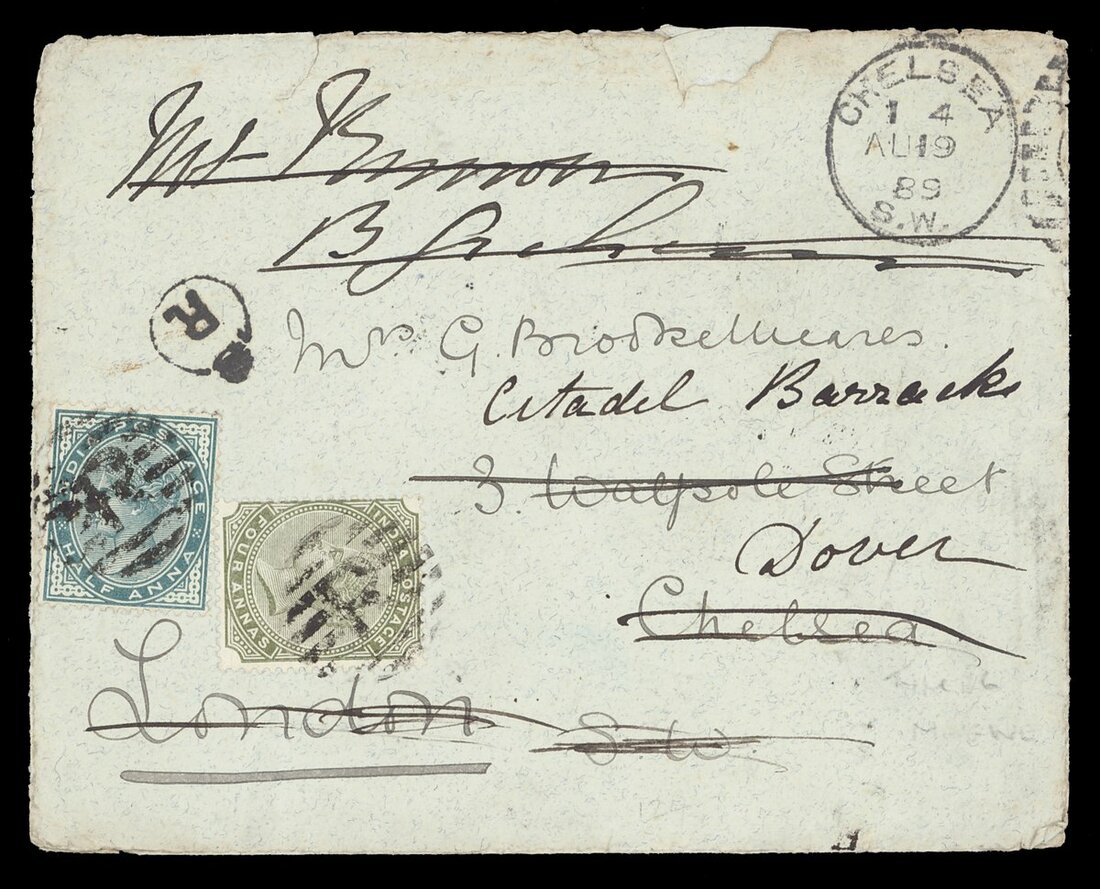 CHELSEA
1 4
AU 19
89
S.W.
R
Mrs G. Brooke Meares.
Citadel Barracks
3 Walpole Street
Dover
Chelsea
London S.W.
INDIA POSTAGE
HALF ANNA
INDIA POSTAGE
FOUR ANNAS